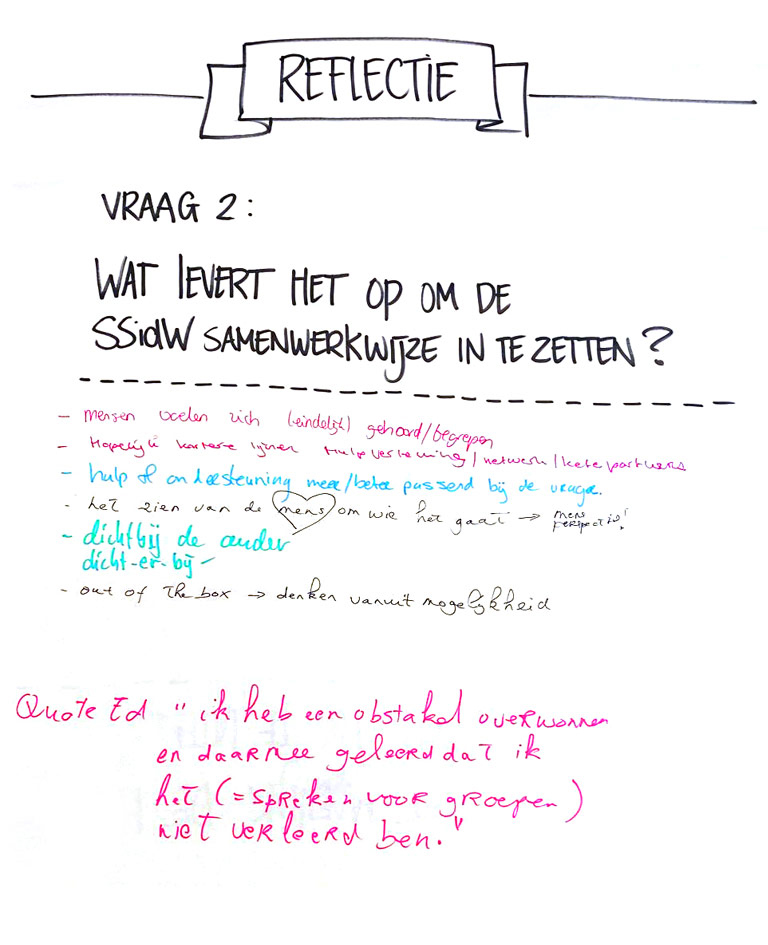 REFLECTIE
VRAAG 2:
WAT lEVERT HET OP OM DE
SSidW SAMENWERKWIJZE IN TE ZETTEN?
- mensen voelen zich (eindelijk) gehoord/begrepen
- Hopelijk kortere lijnen Hulpverlening/netwerk/ketepartners
- hulp of ondersteuning meer/beter passend bij de vrage.
- het zien van de mens om wie het gaat → mens perspectief!
- dichtbij de ander
dicht-er-bij -
- out of The box → denken vanuit mogelijkheid
Quote Ed "ik heb een obstakel overwonnen
en daarmee geleerd dat ik
het (= spreken voor groepen)
niet verleerd ben."